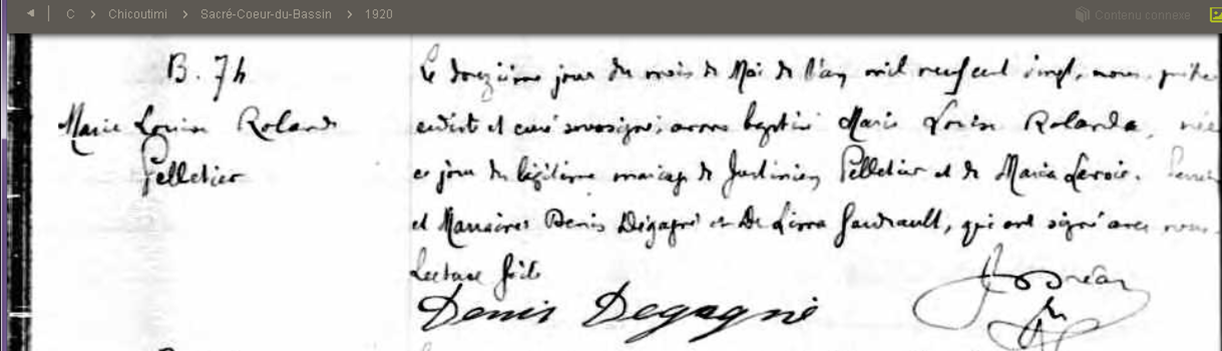 C > Chicoutimi > Sacré-Coeur-du-Bassin > 1920
Contenu connexe
B. 74
Marie Louise Rolande
Pelletier
Le douzième jour du mois de Mai de l'an mil neuf cent vingt, nous, prêtre
eudiste et curé soussigné, avons baptisé Marie Louise Rolande, née
ce jour du légitime mariage de Justinien Pelletier et de Maria Lavoie. Parrain
et Marraine Denis Dégagné et De Lima Gaudrault, qui ont signé avec nous.
Lecture faite
Denis Degagné